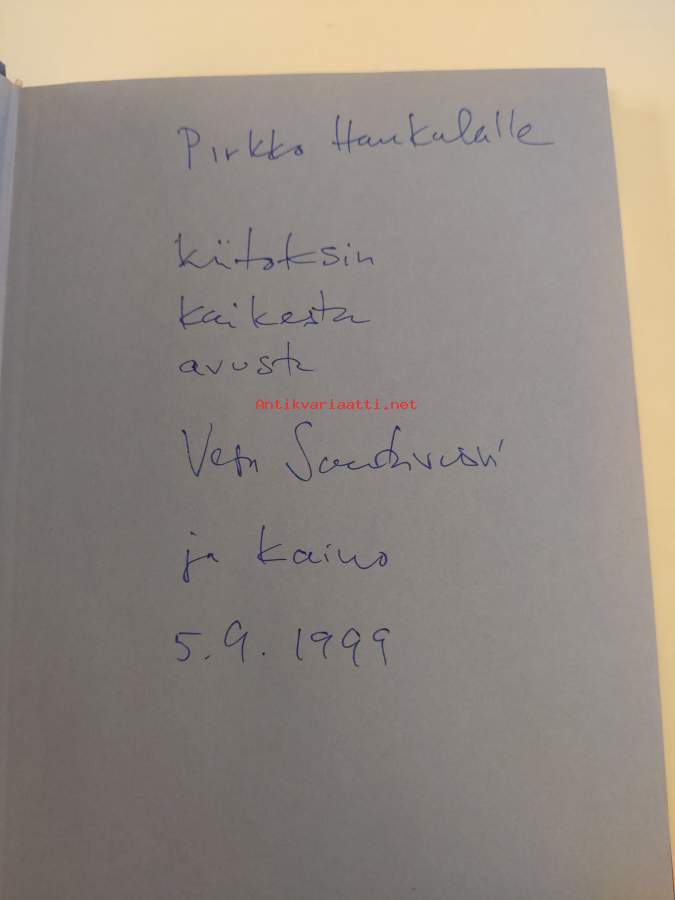 Pirkko Haukalalle
kiitoksin
kaikesta
avusta
Antikvariaatti.net
Vesa
ja Kaino
5.9.1999